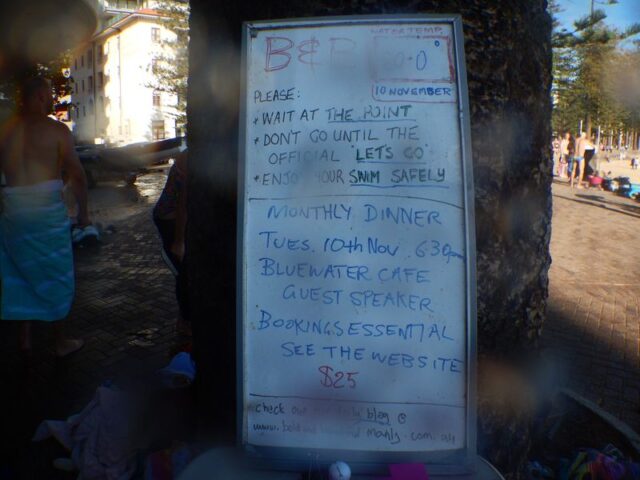 WATER TEMP
B & B
10 NOVEMBER
PLEASE:
* WAIT AT THE POINT
* DON'T GO UNTIL THE
OFFICIAL "LETS GO"
* ENJOY YOUR SWIM SAFELY
MONTHLY DINNER
TUES. 10th Nov. 6.30pm
BLUEWATER CAFE
GUEST SPEAKER
BOOKINGS ESSENTIAL
SEE THE WEBSITE
$25
check out our daily blog @